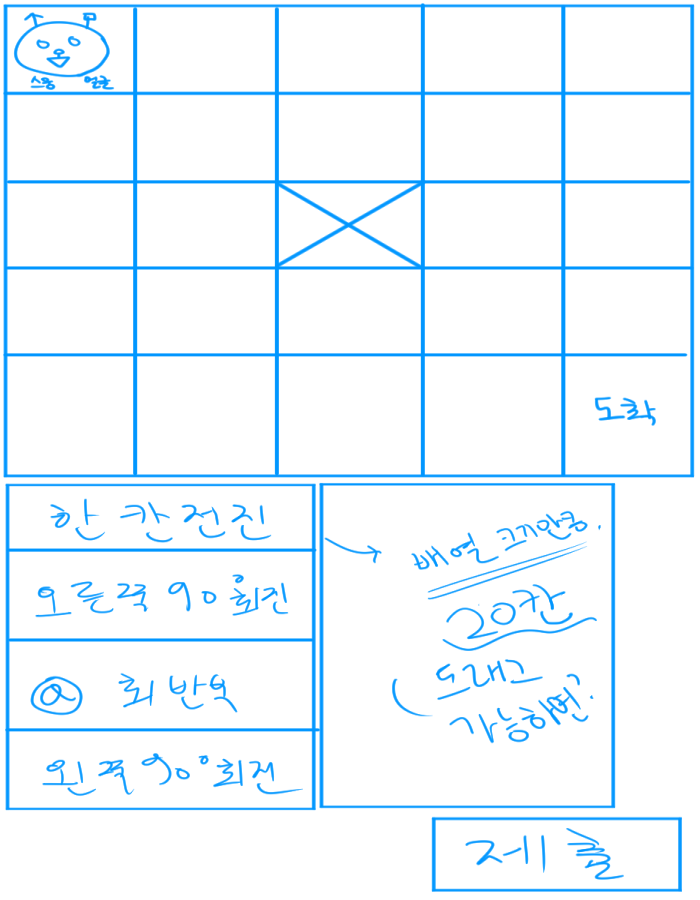 스폰 얼굴
도착
한 칸 전진
오른쪽 90 회전
ⓐ 회 반복
왼쪽 90° 회전
배열 크기만큼.
20칸
드래그
가능하면?
제출